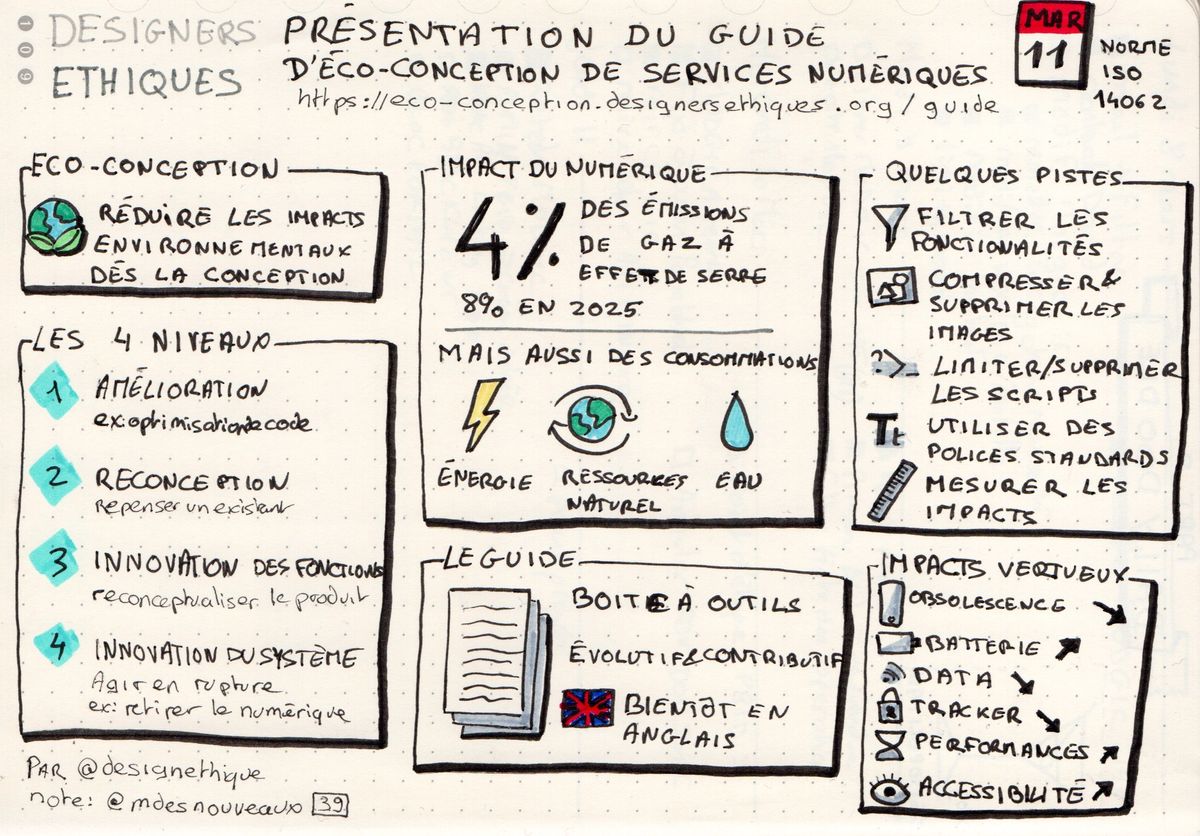 DESIGNERS
ETHIQUES
PRÉSENTATION DU GUIDE
D'ÉCO-CONCEPTION DE SERVICES NUMÉRIQUES
https://eco-conception.designersethiques.org/guide
MAR
11
NORME
ISO
14062
ECO-CONCEPTION
RÉDUIRE LES IMPACTS
ENVIRONNEMENTAUX
DÈS LA CONCEPTION
LES 4 NIVEAUX
1
AMÉLIORATION
ex: optimisation de code
2
RECONCEPTION
repenser un existant
3
INNOVATION DES FONCTIONS
reconceptualiser le produit
4
INNOVATION DU SYSTÈME
Agir en rupture
ex: retirer le numérique
PAR @designethique
note: @mdesnouveaux 39
IMPACT DU NUMÉRIQUE
4%
DES ÉMISSIONS
DE GAZ À
EFFET DE SERRE
8% EN 2025
MAIS AUSSI DES CONSOMMATIONS
ÉNERGIE
RESSOURCES
NATUREL
EAU
LE GUIDE
BOITE À OUTILS
ÉVOLUTIF & CONTRIBUTIF
BIENTÔT EN
ANGLAIS
QUELQUES PISTES
FILTRER LES
FONCTIONALITÉS
COMPRESSER &
SUPPRIMER LES
IMAGES
?>_
LIMITER/SUPPRIMER
LES SCRIPTS
Tt
UTILISER DES
POLICES STANDARDS
MESURER LES
IMPACTS
IMPACTS VERTUEUX
OBSOLESCENCE
BATTERIE
DATA
TRACKER
PERFORMANCES
ACCESSIBILITÉ